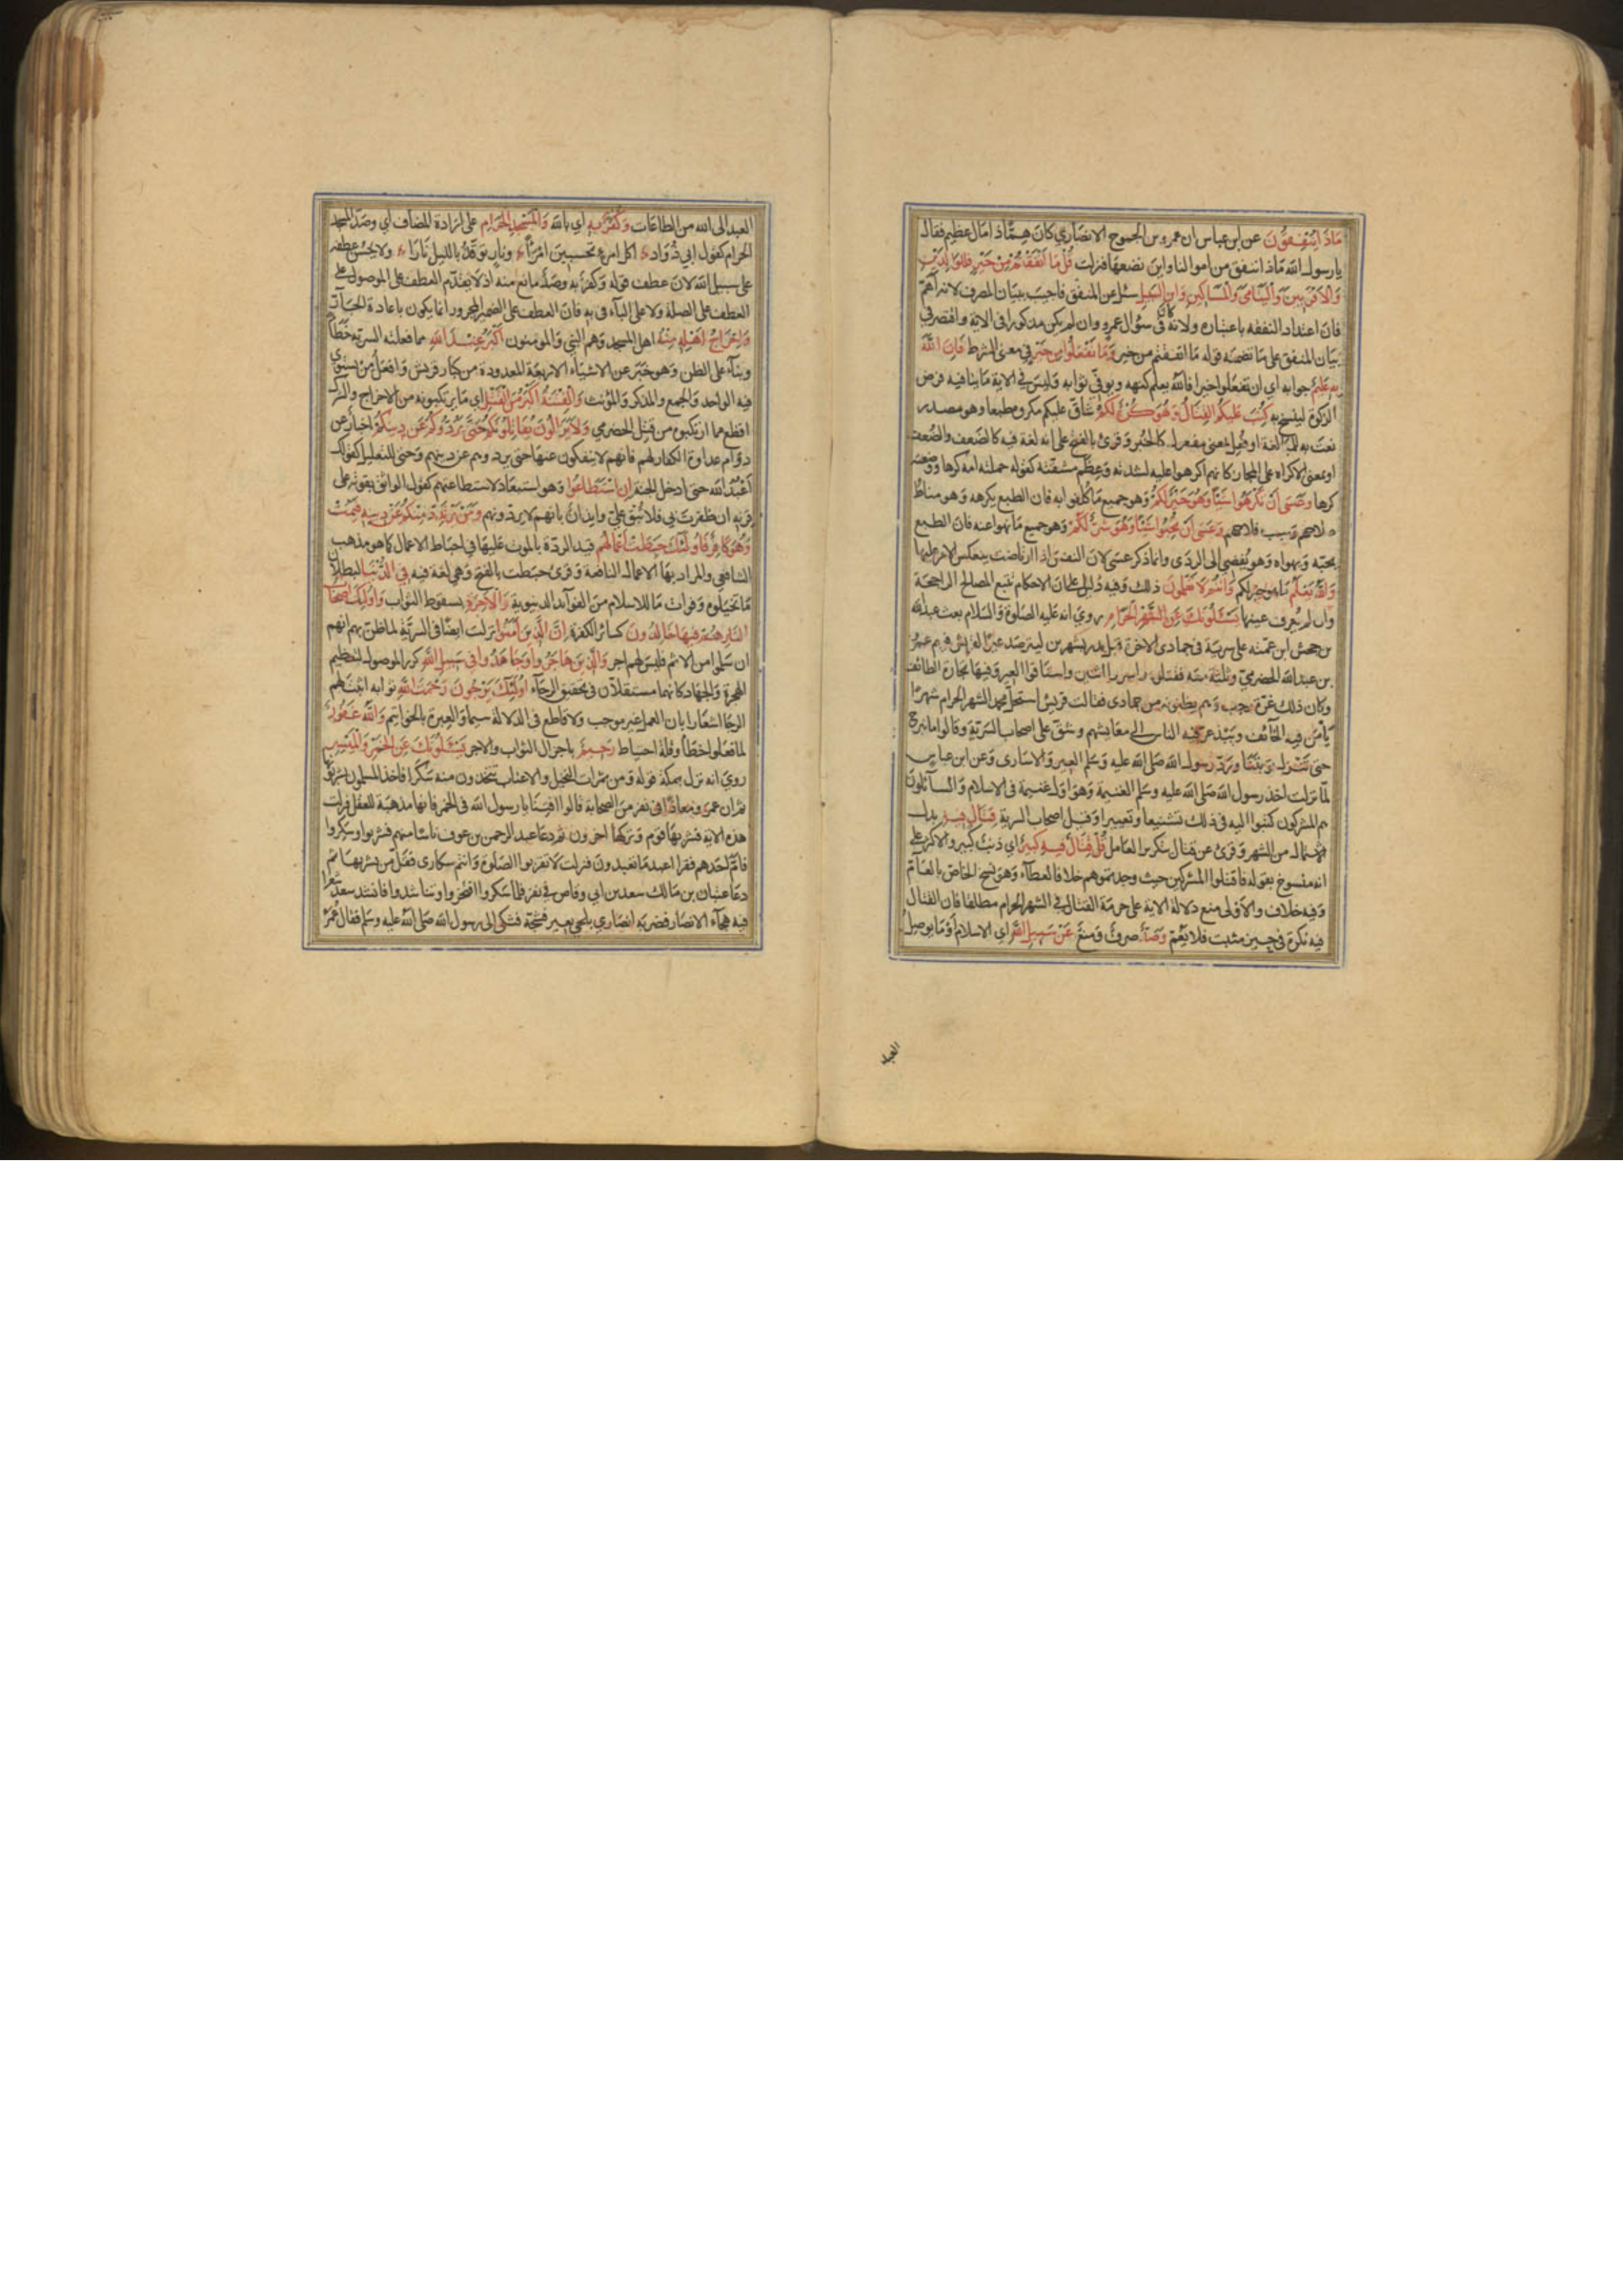 مَاذَا يُنْفِقُونَ عن ابن عباس ان عمرو بن الجموح الانصاري كان هِمًّا ذا مال عظيم فقال
يا رسول الله ماذا ننفق من اموالنا واين نضعها فنزلت قُلْ مَا أَنْفَقْتُمْ مِنْ خَيْرٍ فَلِلْوَالِدَيْنِ
وَالْأَقْرَبِينَ وَالْيَتَامَى وَالْمَسَاكِينِ وَابْنِ السَّبِيلِ سئل عن المنفق فاجيب ببيان المصرف لانه اهم
فان اعتداد النفقة باعتباره ولانه كان في سؤال عمرو وان لم يكن مذكورا في الاية واقتصر في
بيان المنفق على ما تضمنه قوله ما انفقتم من خير وَمَا تَفْعَلُوا مِنْ خَيْرٍ في معنى الشرط فَإِنَّ اللَّهَ
بِهِ عَلِيمٌ جوابه اي ان تفعلوا خيرا فالله يعلم كنهه ويوفي ثوابه وليس في الاية ما ينافيه فرض
الزكوة لينسخ به كُتِبَ عَلَيْكُمُ الْقِتَالُ وَهُوَ كُرْهٌ لَكُمْ شاق عليكم مكروه طبعا وهو مصدر
نعت به للمبالغة او فعل بمعنى مفعول كالخبز وقرئ بالفتح على انه لغة فيه كالضعف والضعف
او بمعنى الاكراه على المجاز كانهم اكرهوا عليه لشدته وعظم مشقته كقوله حملته امه كرها ووضعته
كرها وَعَسَى أَنْ تَكْرَهُوا شَيْئًا وَهُوَ خَيْرٌ لَكُمْ وهو جميع ما كلفوا به فان الطبع يكرهه وهو مناط
صلاحهم وسبب فلاحهم وَعَسَى أَنْ تُحِبُّوا شَيْئًا وَهُوَ شَرٌّ لَكُمْ وهو جميع ما نهوا عنه فان الطبع
يحبه ويهواه وهو يفضي الى الردى وانما ذكر عسى لان النفس اذا ارتاضت ينعكس الامر عليها
وَاللَّهُ يَعْلَمُ ما هو خير لكم وَأَنْتُمْ لَا تَعْلَمُونَ ذلك وفيه دليل على ان الاحكام تتبع المصالح الراجحة
وان لم يعرف عينها يَسْئَلُونَكَ عَنِ الشَّهْرِ الْحَرَامِ روي انه عليه الصلوة والسلام بعث عبد الله
بن جحش ابن عمته على سرية في جمادى الاخرة قبل بدر بشهرين ليترصد عيرا لقريش فيهم عمرو
بن عبد الله الحضرمي وثلثة معه فقتلوه واسروا اثنين واستاقوا العير وفيها تجارة الطائف
وكان ذلك غرة رجب وهم يظنونه من جمادى فقالت قريش استحل محمد الشهر الحرام شهرا
يأمن فيه الخائف ويبذعر فيه الناس الى معايشهم وشق على اصحاب السرية وقالوا ما نبرح
حتى تنزل توبتنا ورد رسول الله صلى الله عليه وسلم العير والاسارى وعن ابن عباس
لما نزلت اخذ رسول الله صلى الله عليه وسلم الغنيمة وهو اول غنيمة في الاسلام والسائلون
هم المشركون كتبوا اليه في ذلك تشنيعا وتعييرا وقيل اصحاب السرية قِتَالٍ فِيهِ بدل
الاشتمال من الشهر وقرئ عن قتال بتكرير العامل قُلْ قِتَالٌ فِيهِ كَبِيرٌ اي ذنب كبير والاكثر على
انه منسوخ بقوله فاقتلوا المشركين حيث وجدتموهم خلافا لعطاء وهو نسخ الخاص بالعام
وفيه خلاف والاولى منع دلالة الاية على حرمة القتال في الشهر الحرام مطلقا فان القتال
فيه نكرة في حيز مثبت فلا يعم وَصَدٌّ صرف ومنع عَنْ سَبِيلِ اللَّهِ اي الاسلام او ما يوصل
العبد
العبد الى الله من الطاعات وَكُفْرٌ بِهِ اي بالله وَالْمَسْجِدِ الْحَرَامِ على ارادة المضاف اي وصد المسجد
الحرام كقول ابي دؤاد اكل امرئ تحسبين امرأ ونار توقد بالليل نارا ولا يحسن عطفه
على سبيل الله لان عطف قوله وكفر به وصد مانع منه اذ لا يتقدم العطف على الموصول على
العطف على الصلة ولا على الهاء في به فان العطف على الضمير المجرور انما يكون باعادة الجار
وَإِخْرَاجُ أَهْلِهِ مِنْهُ اهل المسجد وهم النبي والمؤمنون أَكْبَرُ عِنْدَ اللَّهِ مما فعلته السرية خطأ
وبناء على الظن وهو خبر عن الاشياء الاربعة المعدودة من كبار قريش وافعل من يستوي
فيه الواحد والجمع والمذكر والمؤنث وَالْفِتْنَةُ أَكْبَرُ مِنَ الْقَتْلِ اي ما يرتكبونه من الاخراج والشرك
افظع مما ارتكبوه من قتل الحضرمي وَلَا يَزَالُونَ يُقَاتِلُونَكُمْ حَتَّى يَرُدُّوكُمْ عَنْ دِينِكُمْ اخبار عن
دوام عداوة الكفار لهم فانهم لا ينفكون عنها حتى يردوهم عن دينهم وحتى للتعليل كقولك
اعبد الله حتى ادخل الجنة إِنِ اسْتَطَاعُوا وهو استبعاد لاستطاعتهم كقول الواثق بقوته على
قرنه ان ظفرت بي فلا تبق علي وايذان بانهم لا يردونهم وَمَنْ يَرْتَدِدْ مِنْكُمْ عَنْ دِينِهِ فَيَمُتْ
وَهُوَ كَافِرٌ فَأُولَئِكَ حَبِطَتْ أَعْمَالُهُمْ قيد الردة بالموت عليها في احباط الاعمال كما هو مذهب
الشافعي والمراد بها الاعمال النافعة وقرئ حبطت بالفتح وهي لغة فيه فِي الدُّنْيَا لبطلان
ما تخيلوه وفوات ما للاسلام من الفوائد الدنيوية وَالْآخِرَةِ بسقوط الثواب وَأُولَئِكَ أَصْحَابُ
النَّارِ هُمْ فِيهَا خَالِدُونَ كسائر الكفرة إِنَّ الَّذِينَ آمَنُوا نزلت ايضا في السرية لما ظن بهم انهم
ان سلموا من الاثم فليس لهم اجر وَالَّذِينَ هَاجَرُوا وَجَاهَدُوا فِي سَبِيلِ اللَّهِ كرر الموصول لتعظيم
الهجرة والجهاد كانهما مستقلان في تحقيق الرجاء أُولَئِكَ يَرْجُونَ رَحْمَتَ اللَّهِ ثوابه اثبت لهم
الرجا اشعارا بان العمل غير موجب ولا قاطع في الدلالة سيما والعبرة بالخواتيم وَاللَّهُ غَفُورٌ
لما فعلوا خطأ وقلة احتياط رَحِيمٌ باجزال الثواب والاجر يَسْئَلُونَكَ عَنِ الْخَمْرِ وَالْمَيْسِرِ
روي انه نزل بمكة قوله ومن ثمرات النخيل والاعناب تتخذون منه سكرا فاخذ المسلمون يشربونها
ثم ان عمر ومعاذا في نفر من الصحابة قالوا افتنا يا رسول الله في الخمر فانها مذهبة للعقل فنزلت
هذه الاية فشربها قوم وتركها اخرون ثم دعا عبد الرحمن بن عوف ناسا منهم فشربوا وسكروا
فام احدهم فقرا اعبد ما تعبدون فنزلت لا تقربوا الصلوة وانتم سكارى فقل من يشربها ثم
دعا عتبان بن مالك سعد بن ابي وقاص في نفر فلما سكروا افتخروا وتناشدوا فانشد سعد شعرا
فيه هجاء الانصار فضربه انصاري بلحي بعير فشجه فشكى الى رسول الله صلى الله عليه وسلم فقال عمر